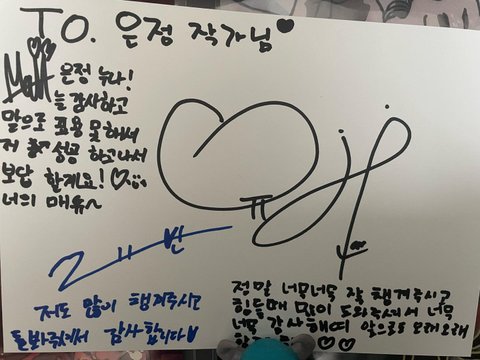 TO. 은정 작가님♥
은정 누나!
늘 감사하고
말으로 표용 못해서
저 성공 하고나서
보답 할게요! ♡
너의 매튜~
저도 많이 챙겨주시고
돌봐줘에서 감사합니다♥
정말 너무너무 잘 챙겨주시고
힘들때 많이 도와주셔서 너무
너무 감사해여 앞으로도 오래오래